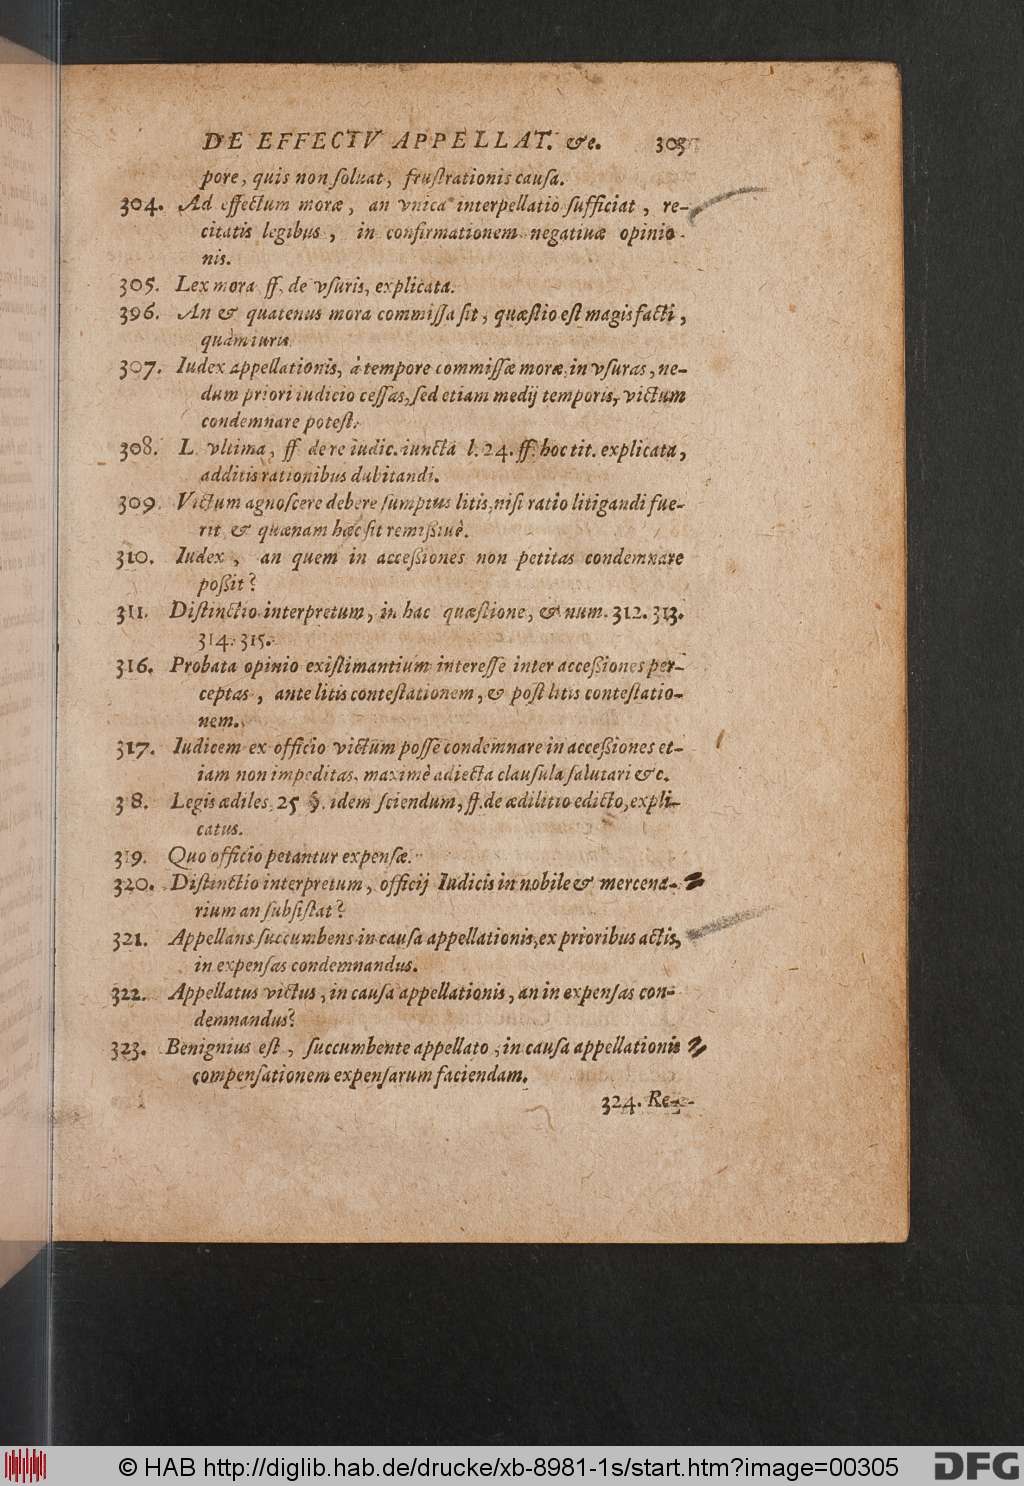 DE EFFECTV APPELLAT. &c. 305
pore, quis non soluat, frustrationis causa.
304. Ad effectum moræ, an vnica interpellatio sufficiat, re-
citatis legibus, in confirmationem negatiuæ opinio-
nis.
305. Lex mora ff. de vsuris, explicata.
396. An & quatenus mora commissa sit, quæstio est magis facti,
quàm iuris.
307. Iudex appellationis, à tempore commissæ moræ, in vsuras, ne-
dum priori iudicio cessas, sed etiam medij temporis, victum
condemnare potest.
308. L. vltima, ff de re iudic. iuncta l. 24. ff. hoc tit. explicata,
additis rationibus dubitandi.
309. Victum agnoscere debere sumptus litis, nisi ratio litigandi fue-
rit & quænam hæc sit remißiuè.
310. Iudex, an quem in acceßiones non petitas condemnare
poßit?
311. Distinctio interpretum, in hac quæstione, & num. 312. 313.
314. 315.
316. Probata opinio existimantium interesse inter acceßiones per-
ceptas, ante litis contestationem, & post litis contestatio-
nem.
317. Iudicem ex officio victum posse condemnare in acceßiones et-
iam non impeditas, maximè adiecta clausula salutari &c.
3 8. Legis ædiles. 25 §. idem sciendum, ff. de ædilitio edicto, expli-
catus.
319. Quo officio petantur expensæ.
320. Distinctio interpretum, officij Iudicis in nobile & mercena-
rium an subsistat?
321. Appellans succumbens in causa appellationis, ex prioribus actis,
in expensas condemnandus.
322. Appellatus victus, in causa appellationis, an in expensas con-
demnandus?
323. Benignius est, succumbente appellato, in causa appellationis
compensationem expensarum faciendam.
324. Re-
© HAB http://diglib.hab.de/drucke/xb-8981-1s/start.htm?image=00305
DFG